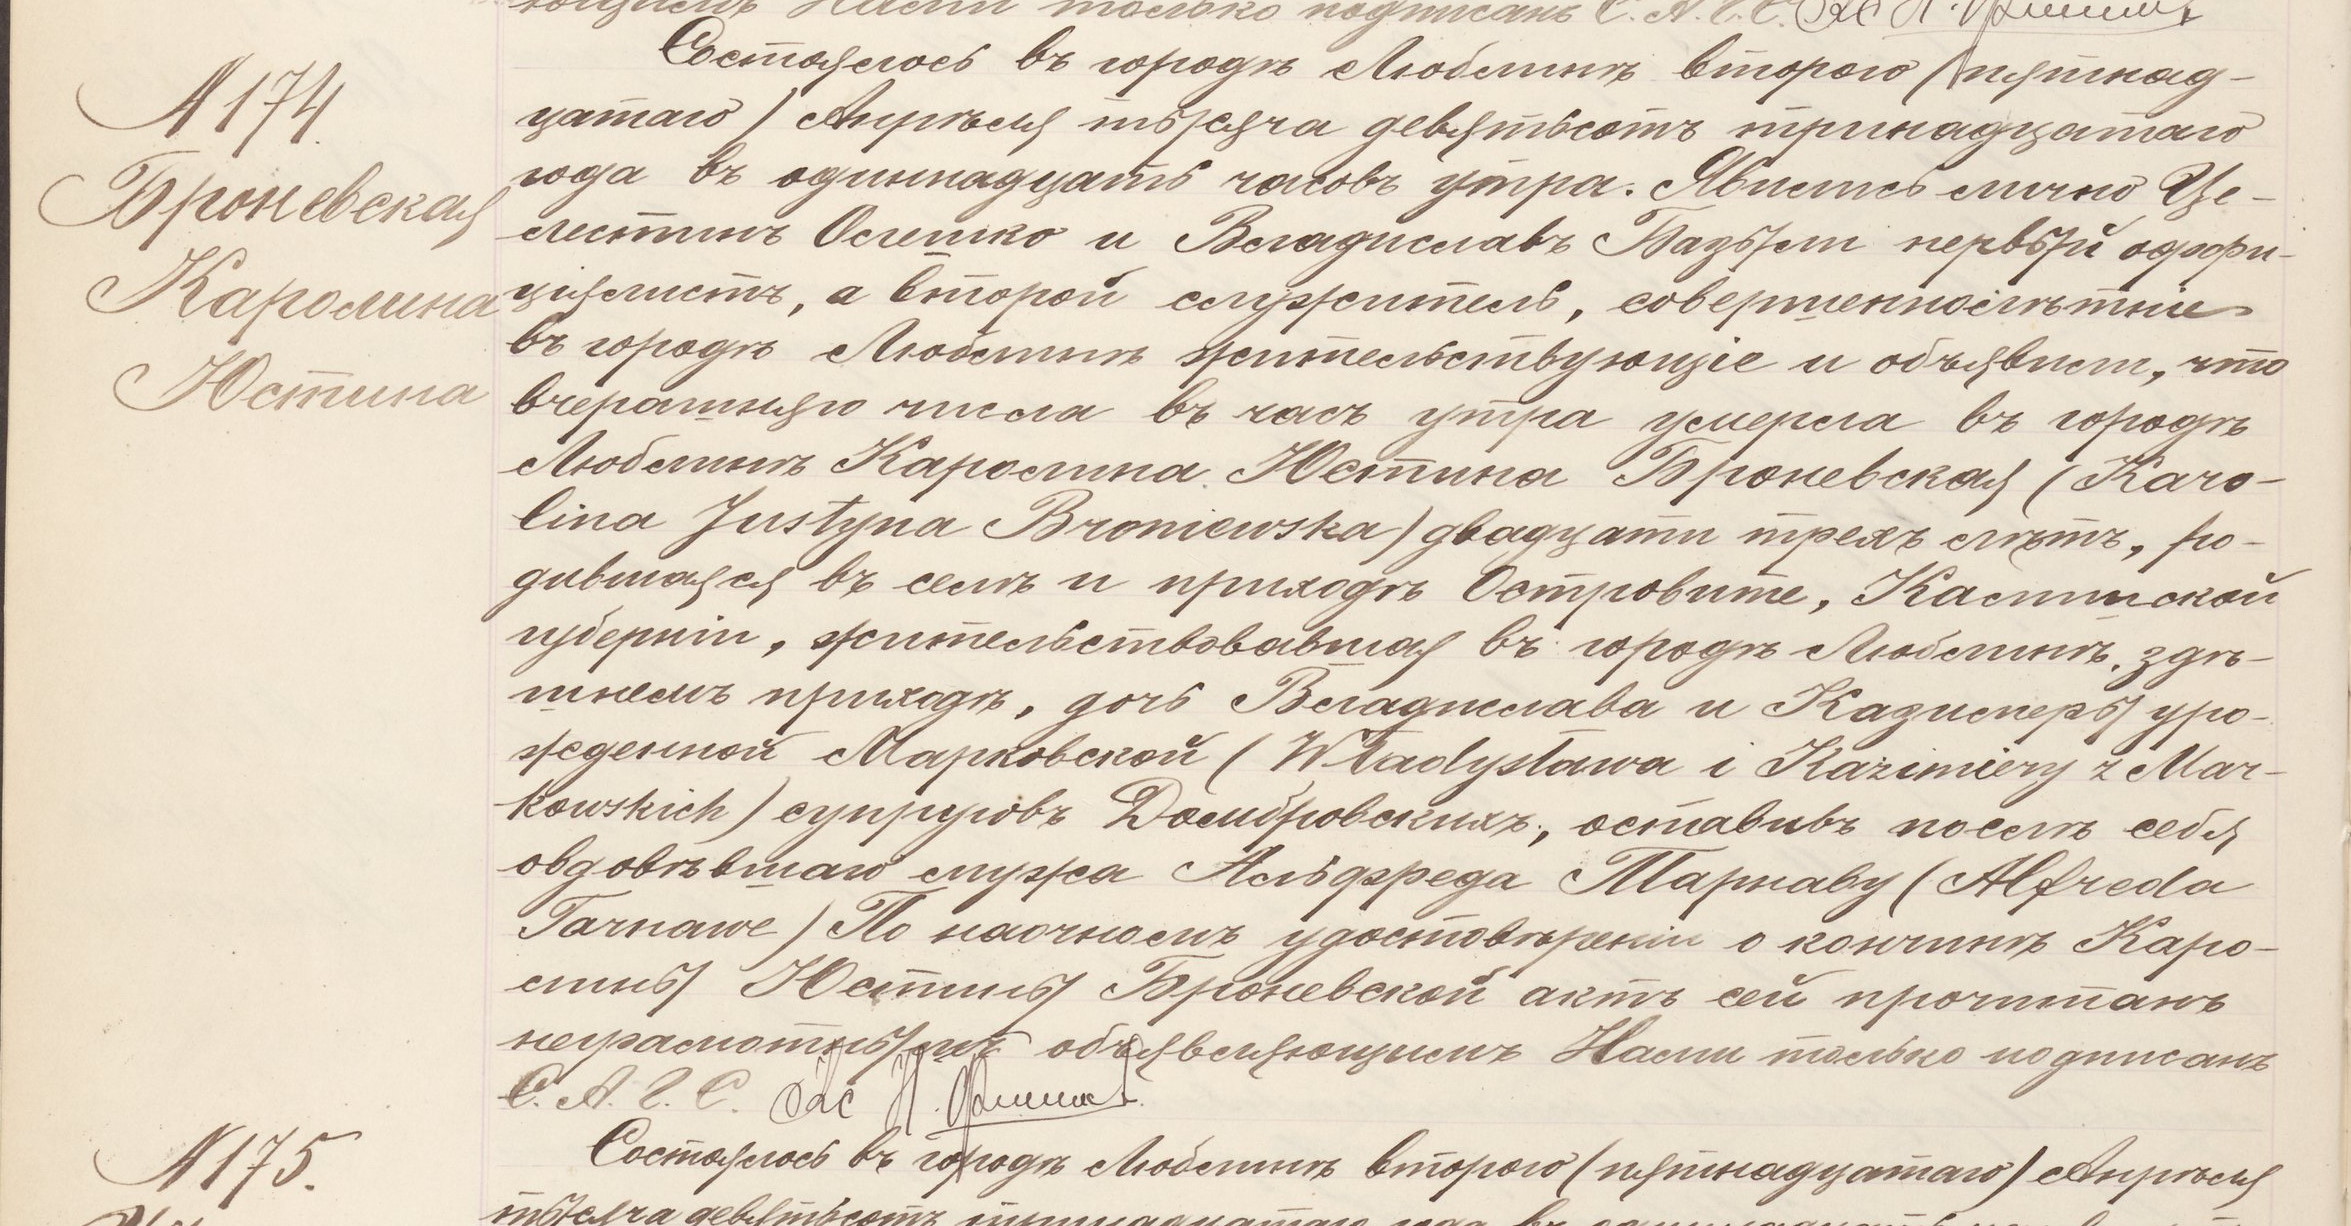 только подписанъ С. А. Г. С.
№ 174.
Броневская
Каролина
Юстина
Состоялось въ городѣ Люблинѣ второго (пятнад-
цатаго) Апрѣля тысяча девятьсотъ тринадцатаго
года въ одиннадцать часовъ утра. Явились лично Це-
лестинъ Ослешко и Владиславъ Базыли первый оффи-
ціялистъ, а второй служитель, совершеннолѣтніе
въ городѣ Люблинѣ жительствующіе и объявили, что
вчерашняго числа въ часъ утра умерла въ городѣ
Люблинѣ Каролина Юстина Броневская (Karo-
lina Justyna Broniewska) двадцати трехъ лѣтъ, ро-
дившаяся въ селѣ и приходѣ Островите, Калишской
губерніи, жительствовавшая въ городѣ Люблинѣ, здѣ-
шнемъ приходѣ, дочь Владислава и Казимеры уро-
жденной Марковской (Władysława i Kazimiery z Mar-
kowskich) супруговъ Домбровскихъ, оставивъ послѣ себя
овдовѣвшаго мужа Альфреда Тарнаву (Alfreda
Tarnawe) По наочномъ удостовѣреніи о кончинѣ Каро-
лины Юстины Броневской актъ сей прочитанъ
неграмотнымъ объявляющимъ Нами только подписанъ
С. А. Г. С.
№ 175.
Состоялось въ городѣ Люблинѣ второго (пятнадцатаго) Апрѣля
тысяча девятьсотъ тринадцатаго года въ